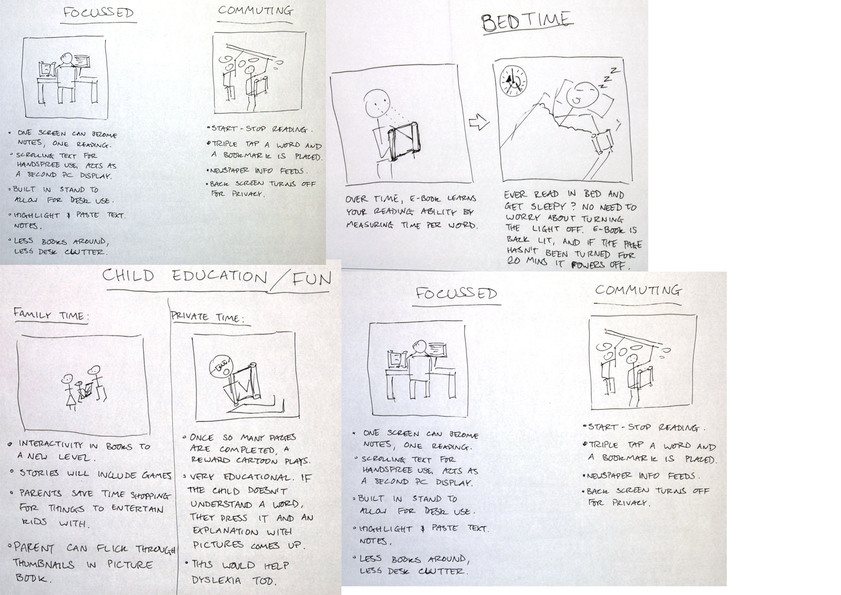 FOCUSSED
ONE SCREEN CAN BECOME
NOTES, ONE READING.
SCROLLING TEXT FOR
HANDSFREE USE, ACTS AS
A SECOND PC DISPLAY.
BUILT IN STAND TO
ALLOW FOR DESK USE.
HIGHLIGHT & PASTE TEXT.
NOTES.
LESS BOOKS AROUND,
LESS DESK CLUTTER.
COMMUTING
START-STOP READING.
TRIPLE TAP A WORD AND
A BOOKMARK IS PLACED.
NEWSPAPER INFO FEEDS.
BACK SCREEN TURNS OFF
FOR PRIVACY.
BEDTIME
Z
Z
Z
OVER TIME, E-BOOK LEARNS
YOUR READING ABILITY BY
MEASURING TIME PER WORD.
EVER READ IN BED AND
GET SLEEPY? NO NEED TO
WORRY ABOUT TURNING
THE LIGHT OFF. E-BOOK IS
BACK LIT, AND IF THE PAGE
HASN'T BEEN TURNED FOR
20 MINS IT POWERS OFF.
CHILD EDUCATION/FUN
FAMILY TIME:
INTERACTIVITY IN BOOKS TO
A NEW LEVEL.
STORIES WILL INCLUDE GAMES
PARENTS SAVE TIME SHOPPING
FOR THINGS TO ENTERTAIN
KIDS WITH.
PARENT CAN FLICK THROUGH
THUMBNAILS IN PICTURE
BOOK.
PRIVATE TIME:
ONCE SO MANY PAGES
ARE COMPLETED, A
REWARD CARTOON PLAYS.
VERY EDUCATIONAL. IF
THE CHILD DOESN'T
UNDERSTAND A WORD,
THEY PRESS IT AND AN
EXPLANATION WITH
PICTURES COMES UP.
THIS WOULD HELP
DYSLEXIA TOO.
FOCUSSED
ONE SCREEN CAN BECOME
NOTES, ONE READING.
SCROLLING TEXT FOR
HANDSFREE USE, ACTS AS
A SECOND PC DISPLAY.
BUILT IN STAND TO
ALLOW FOR DESK USE.
HIGHLIGHT & PASTE TEXT.
NOTES.
LESS BOOKS AROUND,
LESS DESK CLUTTER.
COMMUTING
START-STOP READING.
TRIPLE TAP A WORD AND
A BOOKMARK IS PLACED.
NEWSPAPER INFO FEEDS.
BACK SCREEN TURNS OFF
FOR PRIVACY.